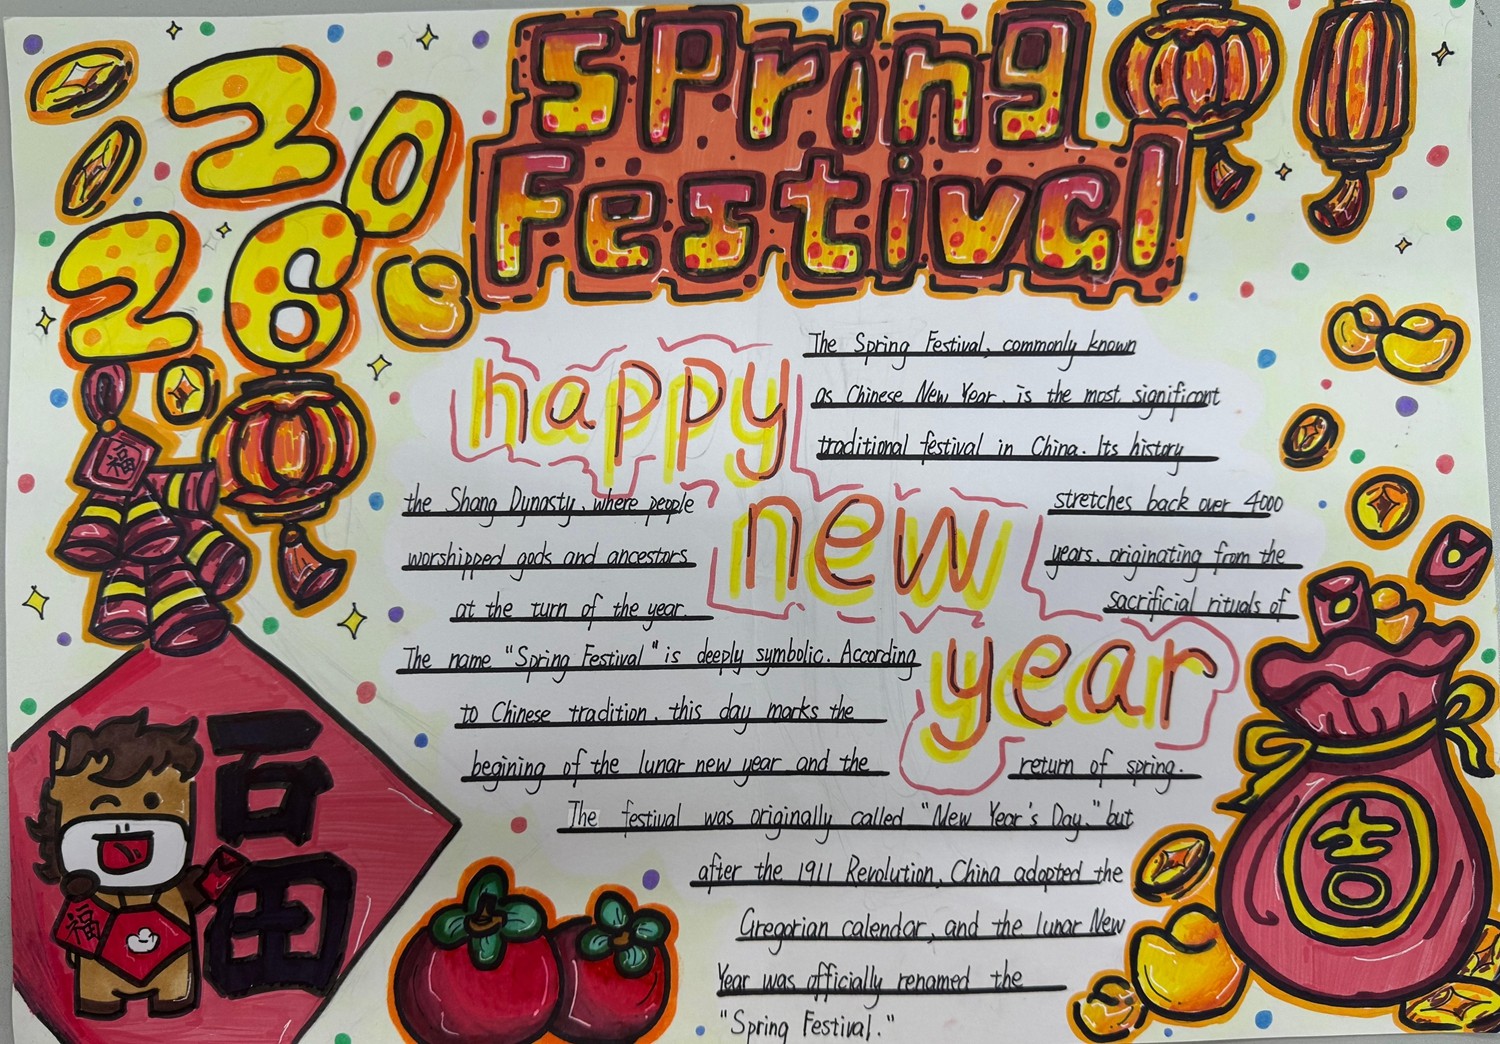 Spring
Festival
20
26
happy
new
year
The Spring Festival, commonly known
as Chinese New Year, is the most significant
traditional festival in China. Its history
stretches back over 4000
years, originating from the
sacrificial rituals of
the Shang Dynasty, where people
worshipped gods and ancestors
at the turn of the year.
The name "Spring Festival" is deeply symbolic. According
to Chinese tradition, this day marks the
begining of the lunar new year and the
return of spring.
The festival was originally called "New Year's Day," but
after the 1911 Revolution, China adopted the
Gregorian calendar, and the lunar New
Year was officially renamed the
"Spring Festival."
福
福
福
吉